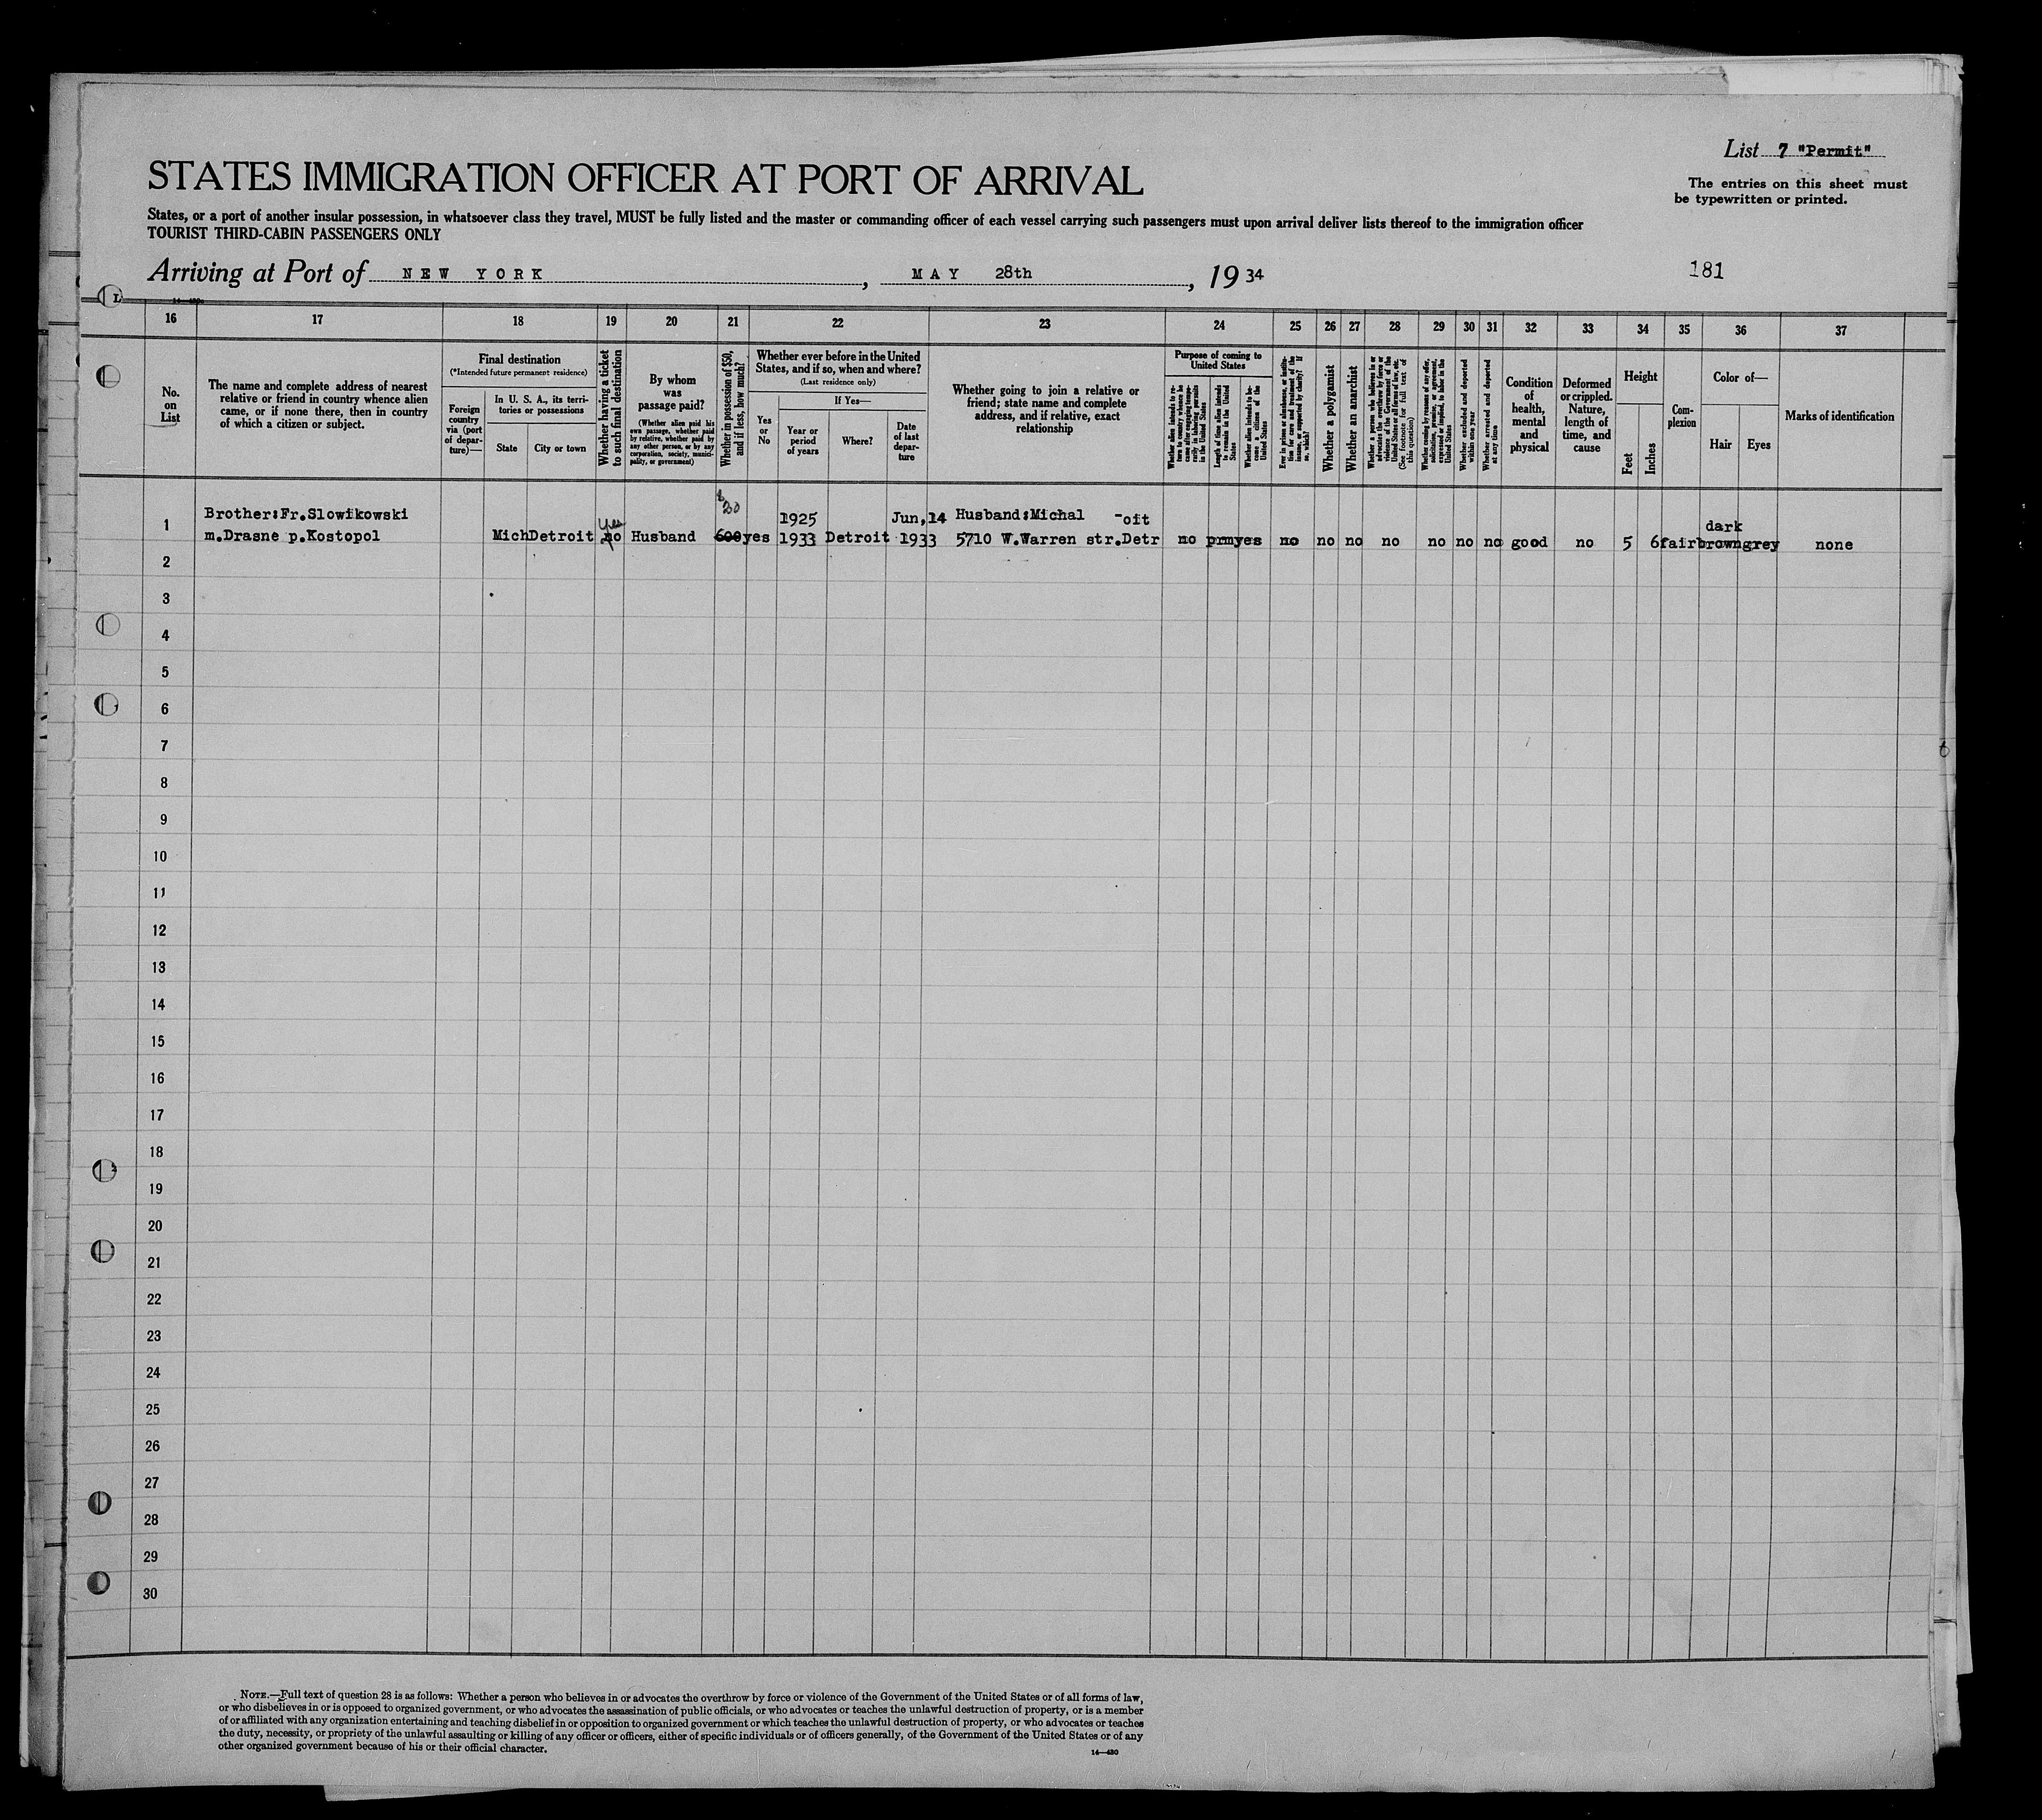 List 7 "Permit"
STATES IMMIGRATION OFFICER AT PORT OF ARRIVAL
The entries on this sheet must
be typewritten or printed.
States, or a port of another insular possession, in whatsoever class they travel, MUST be fully listed and the master or commanding officer of each vessel carrying such passengers must upon arrival deliver lists thereof to the immigration officer
TOURIST THIRD-CABIN PASSENGERS ONLY
Arriving at Port of NEW YORK, MAY 28th, 1934
181
16 17 18 19 20 21 22 23 24 25 26 27 28 29 30 31 32 33 34 35 36 37
No.
on
List
The name and complete address of nearest
relative or friend in country whence alien
came, or if none there, then in country
of which a citizen or subject.
Final destination
(*Intended future permanent residence)
Foreign
country
via (port
of depar-
ture)—
In U. S. A., its terri-
tories or possessions
State
City or town
Whether having a ticket
to such final destination
By whom
was
passage paid?
(Whether alien paid his
own passage, whether paid
by relative, whether paid by
any other person, or by any
corporation, society, munici-
pality, or government)
Whether in possession of $50,
and if less, how much?
Whether ever before in the United
States, and if so, when and where?
(Last residence only)
Yes
or
No
If Yes—
Year or
period
of years
Where?
Date
of last
depar-
ture
Whether going to join a relative or
friend; state name and complete
address, and if relative, exact
relationship
Purpose of coming to
United States
Whether alien intends to re-
turn to country whence he
came after engaging tempo-
rarily in laboring pursuits
in the United States
Length of time alien intends
to remain in the United
States
Whether alien intends to be-
come a citizen of the
United States
Ever in prison or almshouse, or institu-
tion for care and treatment of the
insane, or supported by charity? If
so, which?
Whether a polygamist
Whether an anarchist
Whether a person who believes in or
advocates the overthrow by force or
violence of the Government of the
United States or all forms of law, etc.
(See footnote for full text of
this question)
Whether coming by reason of any offer,
solicitation, promise, or agreement,
expressed or implied, to labor in the
United States
Whether excluded and deported
within one year
Whether arrested and deported
at any time
Condition
of
health,
mental
and
physical
Deformed
or crippled.
Nature,
length of
time, and
cause
Height
Feet
Inches
Com-
plexion
Color of—
Hair
Eyes
Marks of identification
Brother:Fr.Slowikowski yes 30 1925 Jun,14 Husband:Michal -oit dark
1 m.Drasne p.Kostopol Mich Detroit no Husband 600 yes 1933 Detroit 1933 5710 W.Warren str.Detr no prm yes no no no no no no no good no 5 6 fair brown grey none
2
3
4
5
6
7
8
9
10
11
12
13
14
15
16
17
18
19
20
21
22
23
24
25
26
27
28
29
30
NOTE.—Full text of question 28 is as follows: Whether a person who believes in or advocates the overthrow by force or violence of the Government of the United States or of all forms of law,
or who disbelieves in or is opposed to organized government, or who advocates the assassination of public officials, or who advocates or teaches the unlawful destruction of property, or is a member
of or affiliated with any organization entertaining and teaching disbelief in or opposition to organized government or which teaches the unlawful destruction of property, or who advocates or teaches
the duty, necessity, or propriety of the unlawful assaulting or killing of any officer or officers, either of specific individuals or of officers generally, of the Government of the United States or of any
other organized government because of his or their official character.
14—430